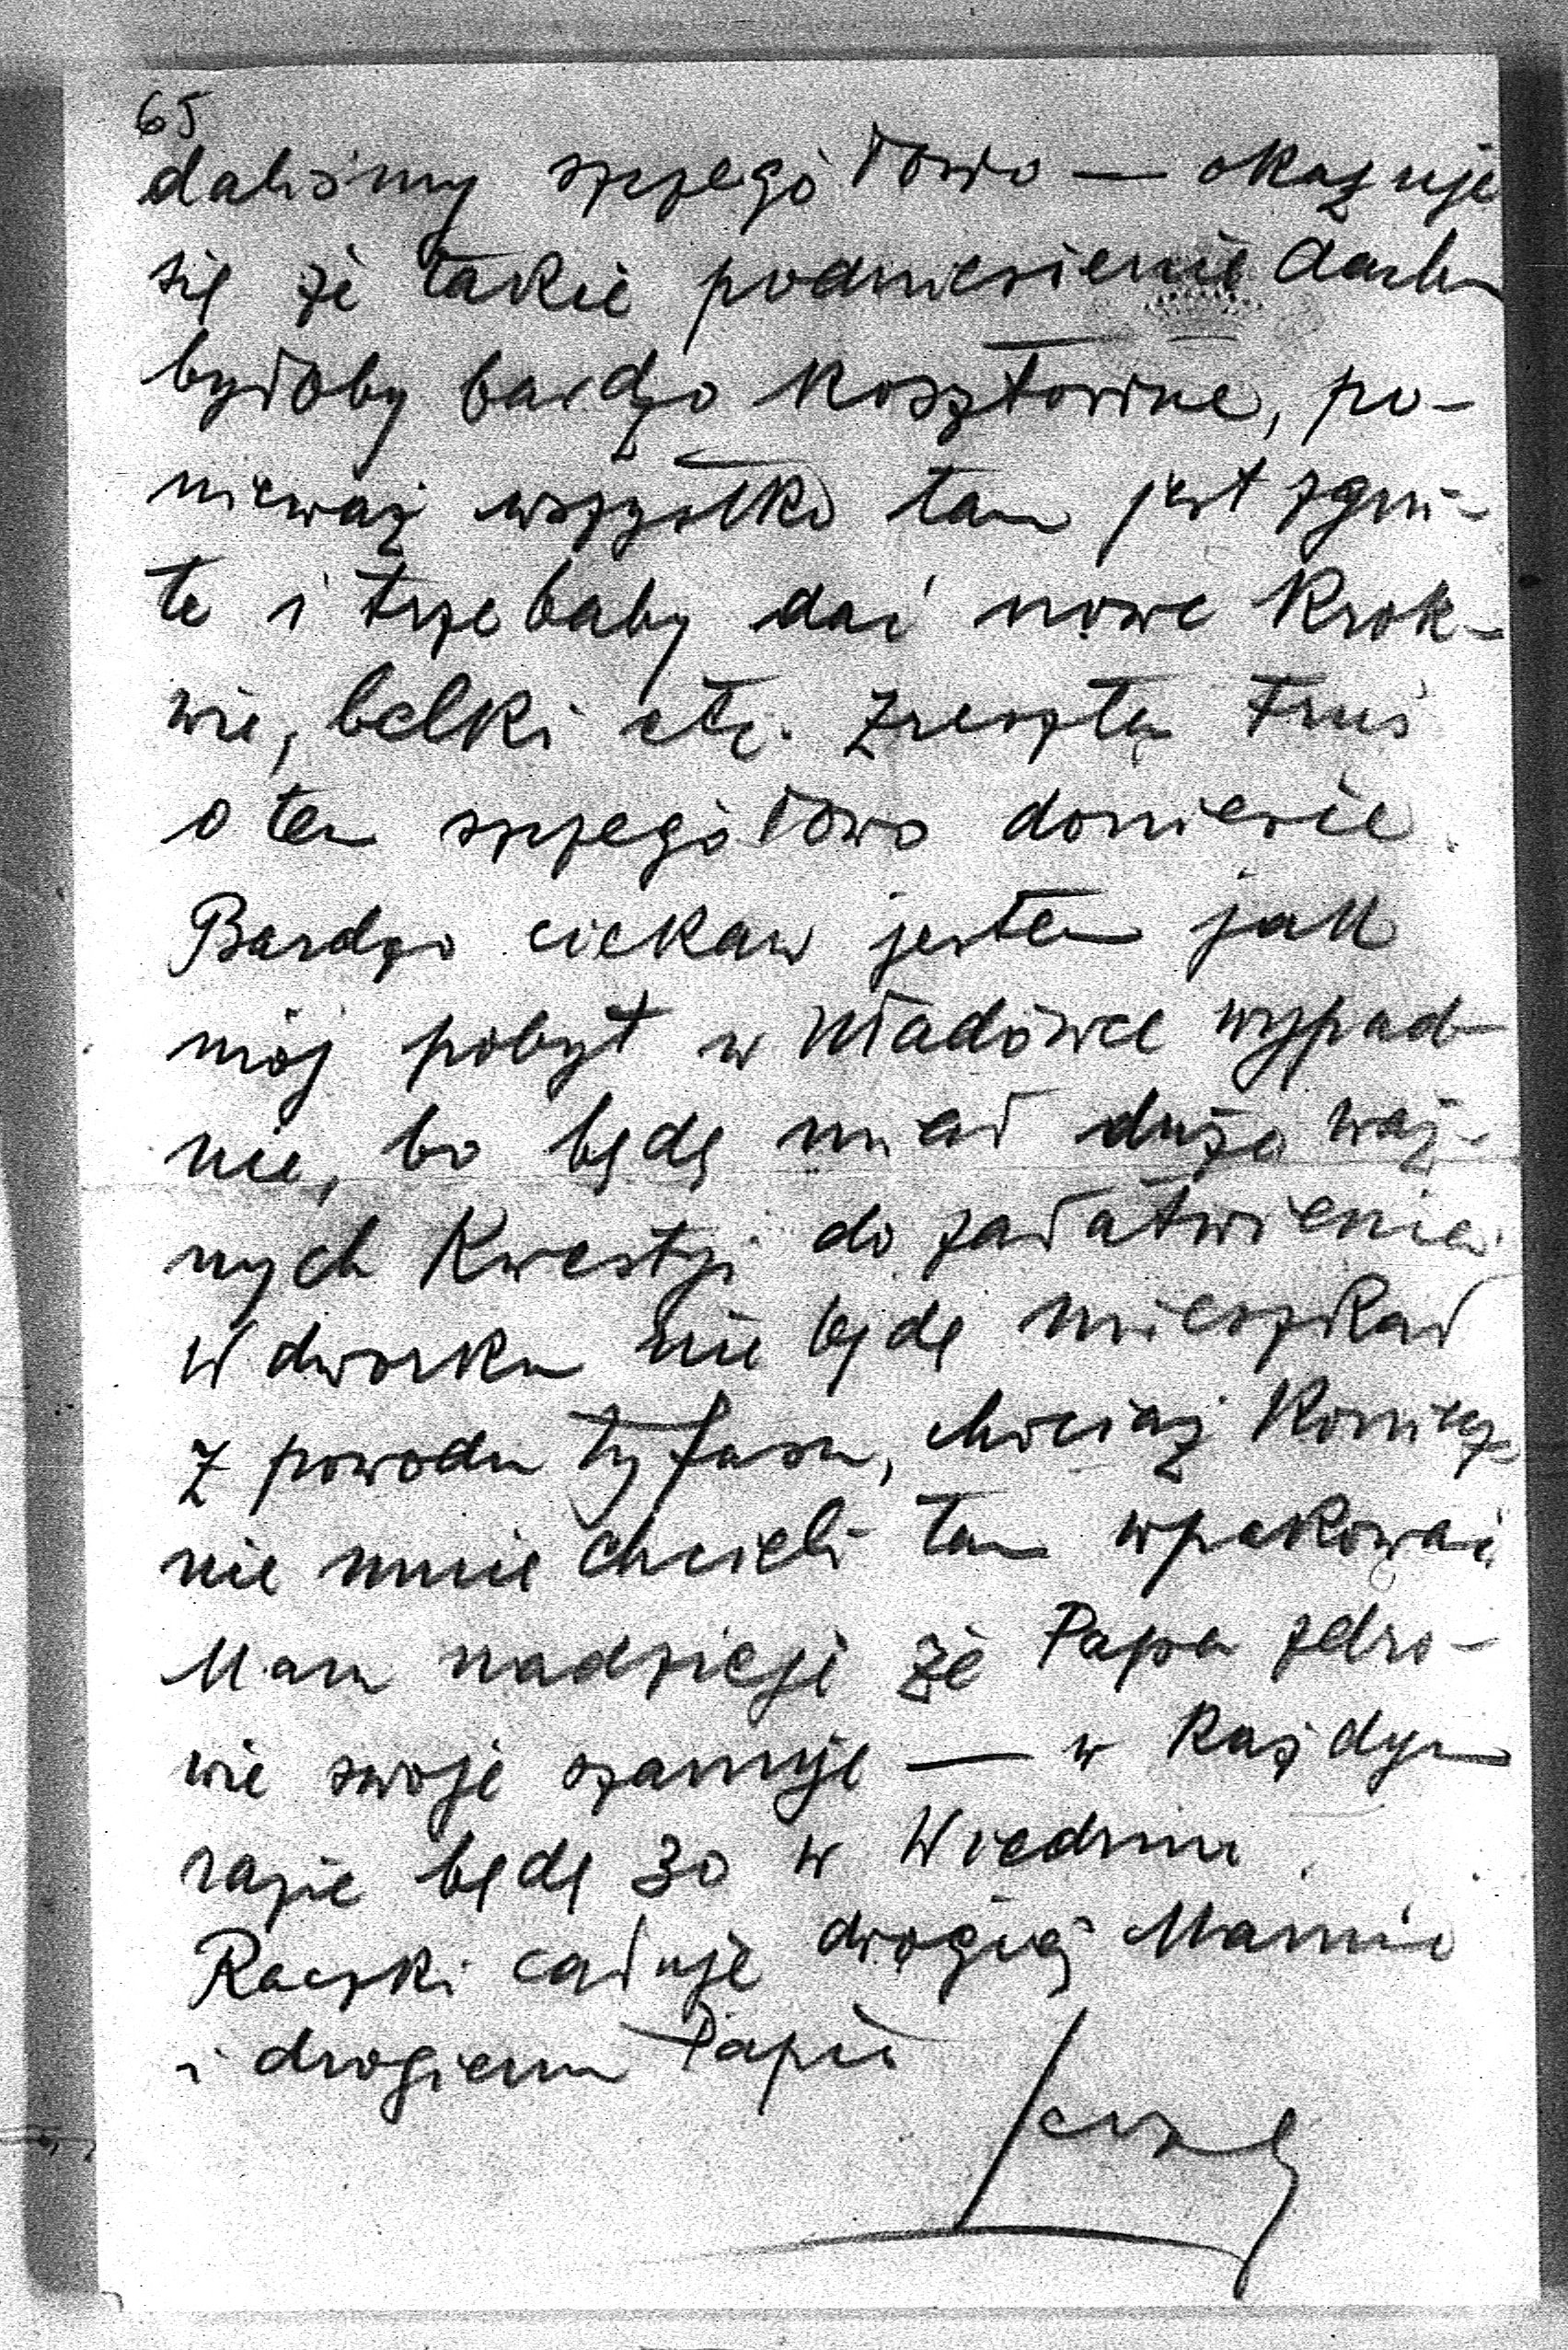 65
daliśmy szczegółowo — okazuje
się że takie podniesienie dachu
byłoby bardzo kosztowne, po-
nieważ wszystko tam jest zgni-
te i trzebaby dać nowe krok-
wie, belki etc. Zresztą Truś
o tem szczegółowo doniesie.
Bardzo ciekaw jestem jak
mój pobyt w Władówce wypad-
nie, bo będę miał dużo waż-
nych kwestyi do załatwienia
W dworku nie będę mieszkał
z powodu tyfusu, chociaż koniecz-
nie mnie chcieli tam wpakować.
Mam nadzieję że Papa zdro-
wie swoje szanuje — w każdym
razie będę 30 w Wiedniu.
Rączki całuję drogiej Mamie
i drogiemu Papie
Jerzy